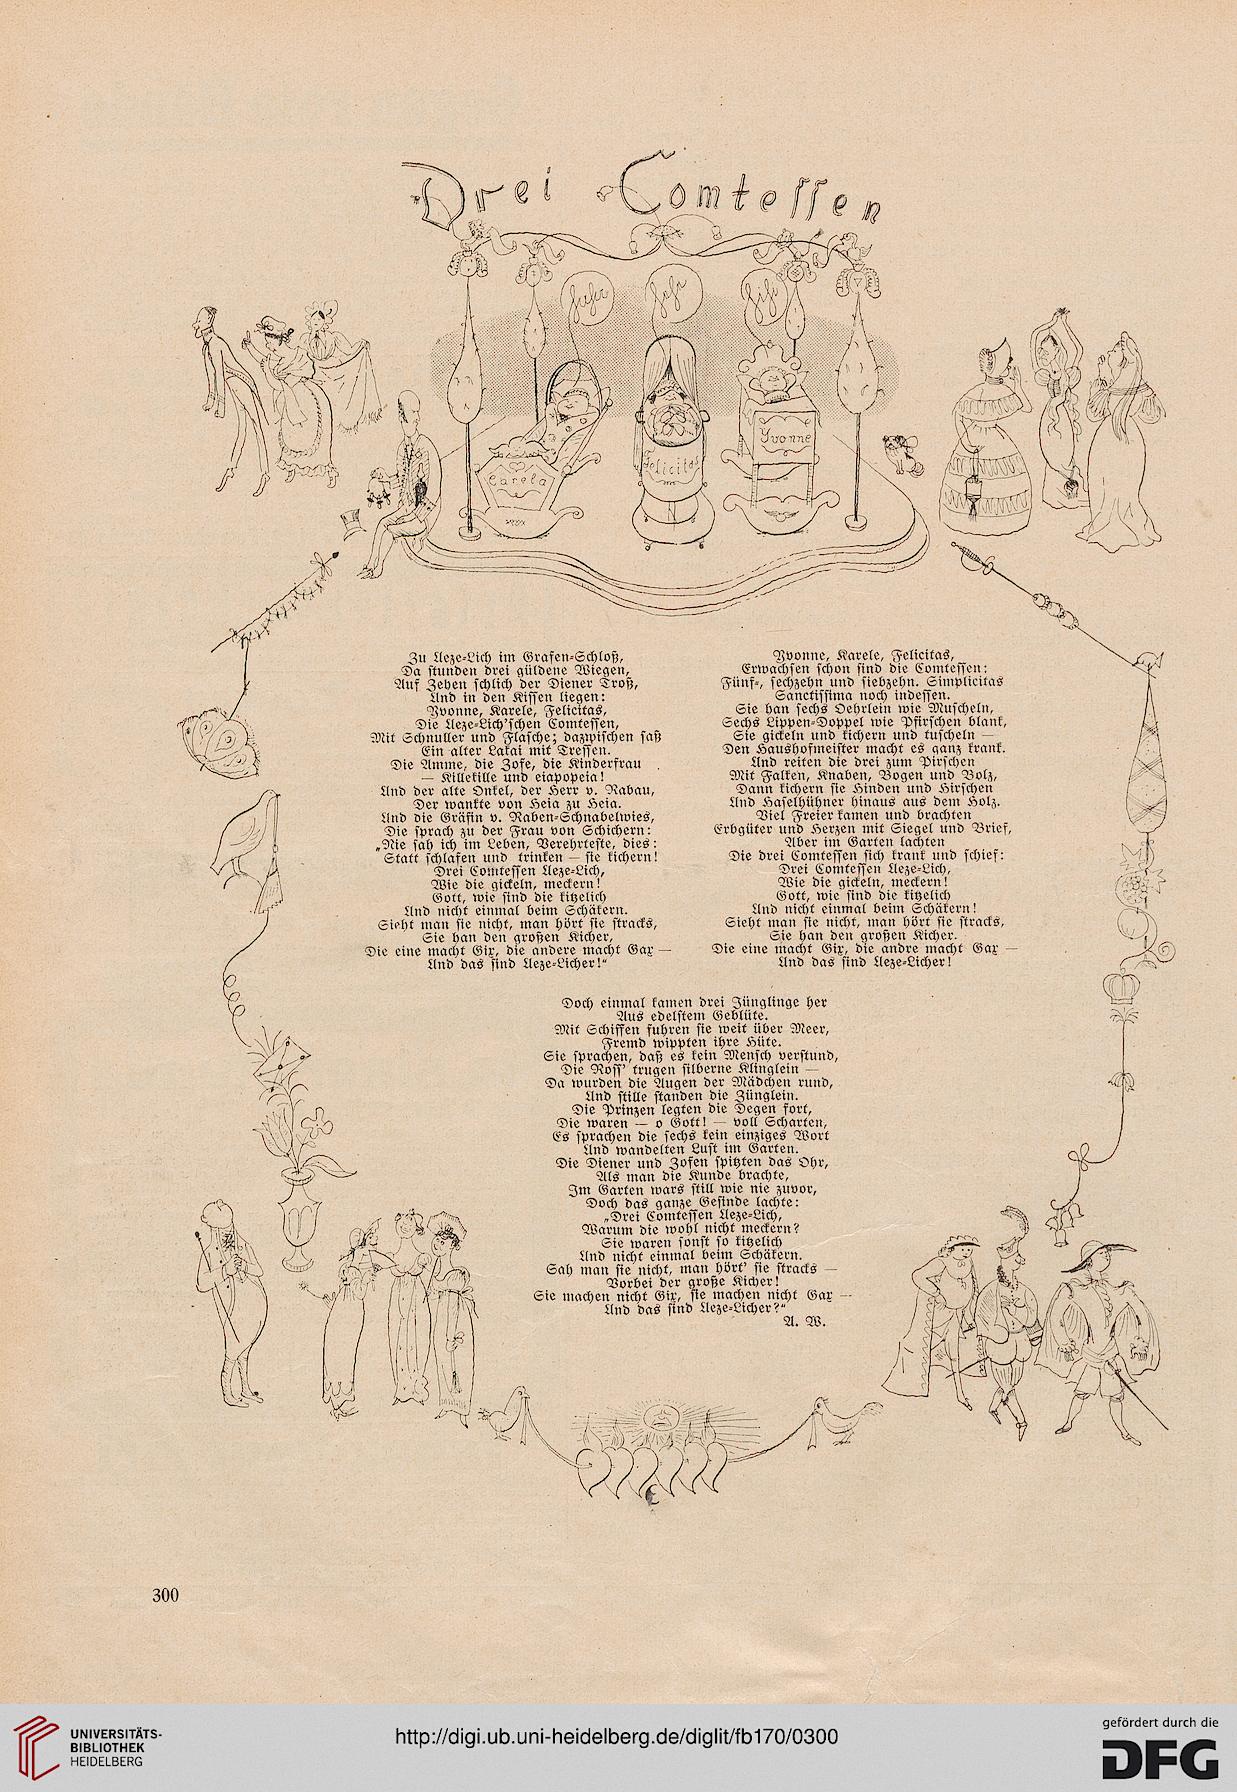 Drei Comteſſen
Carela
Felicitas
Yvonne
Zu Ueze-Lich im Grafen-Schloß,
Da ſtunden drei güldene Wiegen,
Auf Zehen ſchlich der Diener Troß,
Und in den Kiſſen liegen:
Yvonne, Karele, Felicitas,
Die Ueze-Lich'ſchen Comteſſen,
Mit Schnuller und Flaſche; dazwiſchen ſaß
Ein alter Lakai mit Treſſen.
Die Amme, die Zofe, die Kinderfrau
— Killekille und eiapopeia!
Und der alte Onkel, der Herr v. Rabau,
Der wankte von Heia zu Heia.
Und die Gräfin v. Raben-Schnabelwies,
Die ſprach zu der Frau von Schichern:
„Nie ſah ich im Leben, Verehrteſte, dies:
Statt ſchlafen und trinken — ſie kichern!
Drei Comteſſen Ueze-Lich,
Wie die gickeln, meckern!
Gott, wie ſind die kitzelich
Und nicht einmal beim Schäkern.
Sieht man ſie nicht, man hört ſie ſtracks,
Sie han den großen Kicher,
Die eine macht Gix, die andere macht Gax —
Und das ſind Ueze-Licher!“
Yvonne, Karele, Felicitas,
Erwachſen ſchon ſind die Comteſſen:
Fünf-, ſechzehn und ſiebzehn. Simplicitas
Sanctiſſima noch indeſſen.
Sie han ſechs Oehrlein wie Muſcheln,
Sechs Lippen-Doppel wie Pfirſchen blank,
Sie gickeln und kichern und tuſcheln —
Den Haushofmeiſter macht es ganz krank.
Und reiten die drei zum Pirſchen
Mit Falken, Knaben, Bogen und Bolz,
Dann kichern ſie Hinden und Hirſchen
Und Haſelhühner hinaus aus dem Holz.
Viel Freier kamen und brachten
Erbgüter und Herzen mit Siegel und Brief,
Aber im Garten lachten
Die drei Comteſſen ſich krank und ſchief:
Drei Comteſſen Ueze-Lich,
Wie die gickeln, meckern!
Gott, wie ſind die kitzelich
Und nicht einmal beim Schäkern!
Sieht man ſie nicht, man hört ſie ſtracks,
Sie han den großen Kicher.
Die eine macht Gix, die andre macht Gax —
Und das ſind Ueze-Licher!
Doch einmal kamen drei Jünglinge her
Aus edelſtem Geblüte.
Mit Schiffen fuhren ſie weit über Meer,
Fremd wippten ihre Hüte.
Sie ſprachen, daß es kein Menſch verſtund,
Die Roſſ' trugen ſilberne Klinglein —
Da wurden die Augen der Mädchen rund,
Und ſtille ſtanden die Zünglein.
Die Prinzen legten die Degen fort,
Die waren — o Gott! — voll Scharten,
Es ſprachen die ſechs kein einziges Wort
Und wandelten Luſt im Garten.
Die Diener und Zofen ſpitzten das Ohr,
Als man die Kunde brachte,
Im Garten wars ſtill wie nie zuvor,
Doch das ganze Geſinde lachte:
„Drei Comteſſen Ueze-Lich,
Warum die wohl nicht meckern?
Sie waren ſonſt ſo kitzelich
Und nicht einmal beim Schäkern.
Sah man ſie nicht, man hört' ſie ſtracks —
Vorbei der große Kicher!
Sie machen nicht Gix, ſie machen nicht Gax —
Und das ſind Ueze-Licher?“
A. W.
300
UNIVERSITÄTS-
BIBLIOTHEK
HEIDELBERG
http://digi.ub.uni-heidelberg.de/diglit/fb170/0300
gefördert durch die
DFG